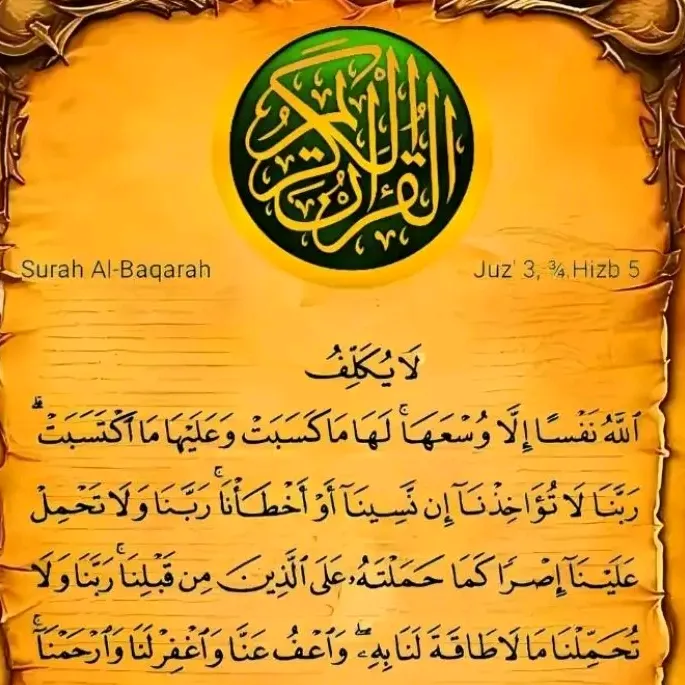 القرآن الكريم
Surah Al-Baqarah
Juz' 3, ¾ Hizb 5
لَا يُكَلِّفُ
ٱللَّهُ نَفْسًا إِلَّا وُسْعَهَا ۚ لَهَا مَا كَسَبَتْ وَعَلَيْهَا مَا ٱكْتَسَبَتْ ۗ
رَبَّنَا لَا تُؤَاخِذْنَآ إِن نَّسِينَآ أَوْ أَخْطَأْنَا ۚ رَبَّنَا وَلَا تَحْمِلْ
عَلَيْنَآ إِصْرًا كَمَا حَمَلْتَهُۥ عَلَى ٱلَّذِينَ مِن قَبْلِنَا ۚ رَبَّنَا وَلَا
تُحَمِّلْنَا مَا لَا طَاقَةَ لَنَا بِهِۦ ۖ وَٱعْفُ عَنَّا وَٱغْفِرْ لَنَا وَٱرْحَمْنَآ ۚ